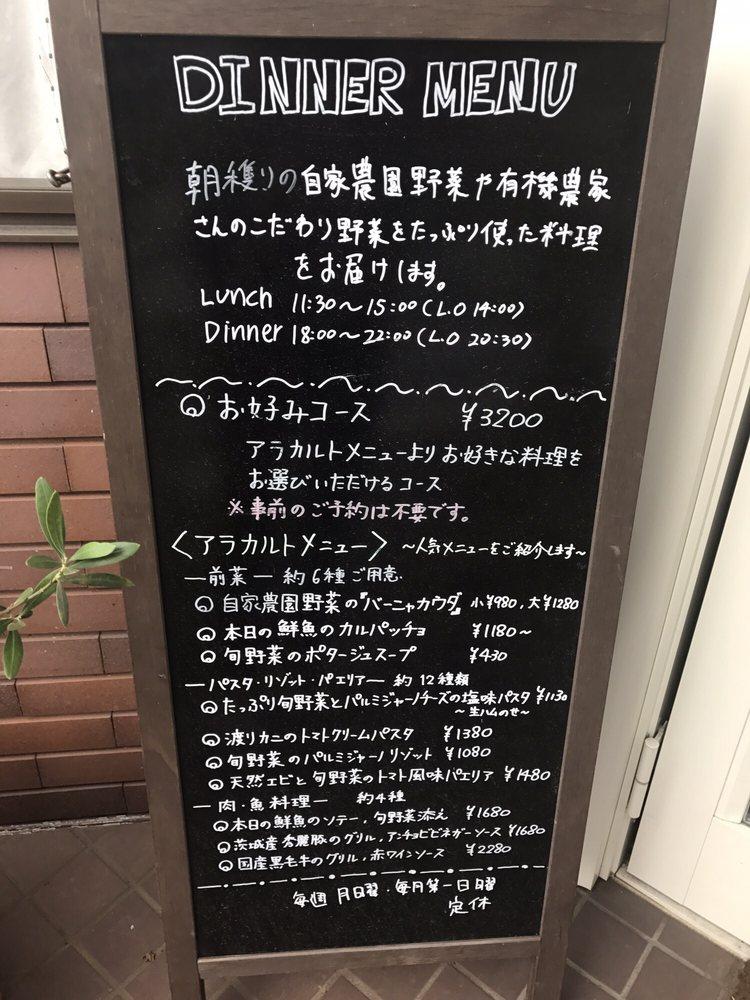 DINNER MENU
朝穫りの自家農園野菜や有機農家
さんのこだわり野菜をたっぷり使った料理
をお届けします。
Lunch 11:30〜15:00(L.O 14:00)
Dinner 18:00〜22:00(L.O 20:30)
お好みコース ¥3200
アラカルトメニューよりお好きな料理を
お選びいただけるコース
※事前のご予約は不要です。
〈アラカルトメニュー〉 〜人気メニューをご紹介します〜
—前菜— 約6種ご用意
自家農園野菜の『バーニャカウダ』 小¥980, 大¥1280
本日の鮮魚のカルパッチョ ¥1180〜
旬野菜のポタージュスープ ¥430
—パスタ・リゾット・パエリア— 約12種類
たっぷり旬野菜とパルミジャーノチーズの塩味パスタ ¥1130
〜生ハムのせ〜
渡りカニのトマトクリームパスタ ¥1380
旬野菜のパルミジャーノリゾット ¥1080
天然エビと旬野菜のトマト風味パエリア ¥1480
—肉・魚料理— 約4種
本日の鮮魚のソテー, 旬野菜添え ¥1680
茨城産秀麗豚のグリル, アンチョビビネガーソース ¥1680
国産黒毛牛のグリル, 赤ワインソース ¥2280
毎週 月曜・毎月第一日曜
定休